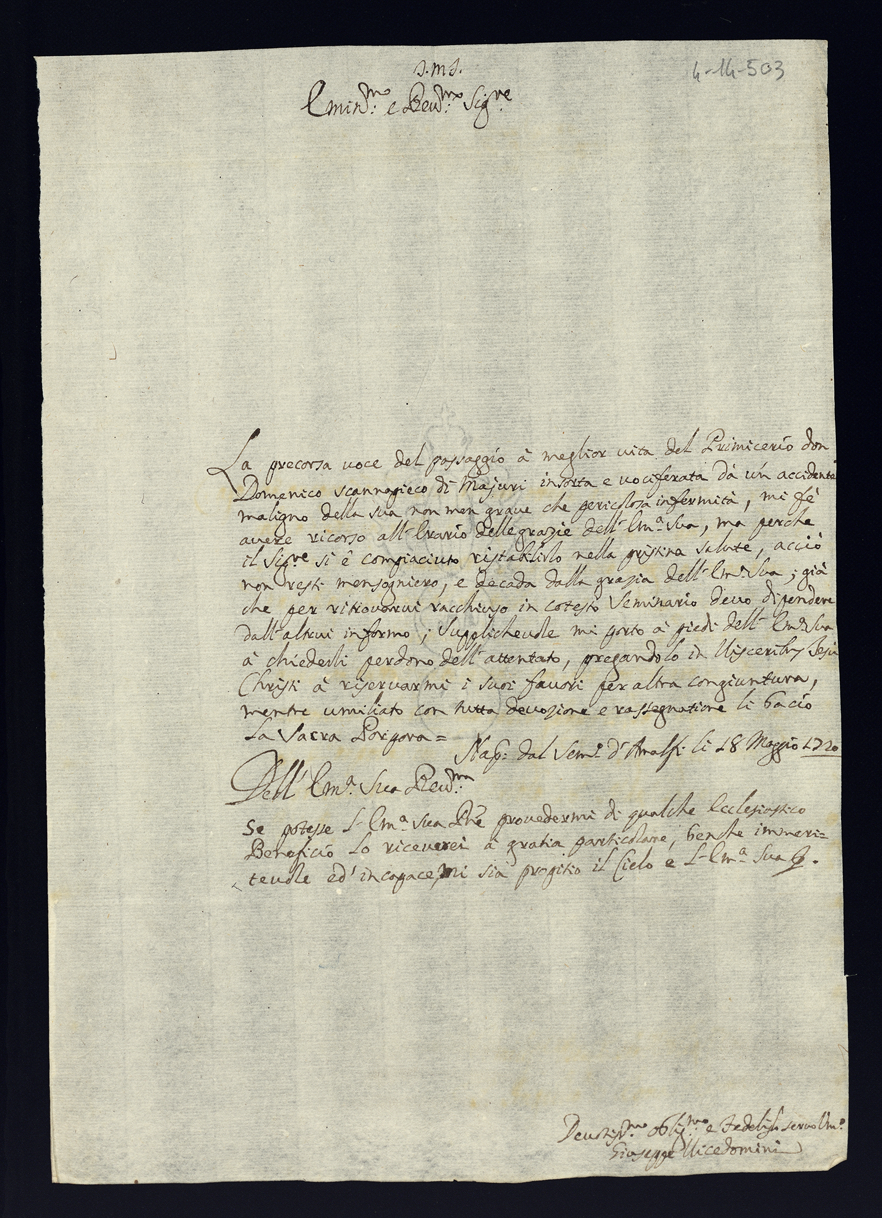 J.M.J.
4-14-503
Emin.mo e Reu.mo Sig.re
La precorsa uoce del passaggio à meglior uita del Primicerio don
Domenico scannapieco di Majuri insorta e uociferata dà un accidente
maligno della sua non men graue che pericolosa infermità, mi fè
auere ricorso all'Erario delle grazie dell'Em.a Sua, ma perche
il Sig.re si è compiaciuto ristabilirlo nella pristina salute, acciò
non resti mensogniero, e decada dalla grazia dell'Em.a Sua; già
che per ritrouarmi racchiuso in cotesto Seminario deuo dipendere
dall'altrui informo; supplicheuole mi porto à piedi dell'Em.a Sua
à chiederli perdono dell'attentato, pregandolo in Uisceribus Jesu
Christi à riseruarmi i suoi fauori per altra congiuntura,
mentre umiliato con tutta deuozione e rassegnatione li bacio
la Sacra Porpora=
Nap: dal Sem.o d'Amalfi li 18 Maggio 1720
Dell'Em.a Sua Reu.ma
Se potesse L'Em.a Sua provedermi di qualche Ecclesiastico
Beneficio lo riceuerei à gratia particolare, benche immeri=
teuole ed' incapace, mi sia propitio il Cielo e L'Em.a Sua
Deuotiss.mo obli.mo e Fedeliss. seruo Um.o
Giuseppe Uicedomini